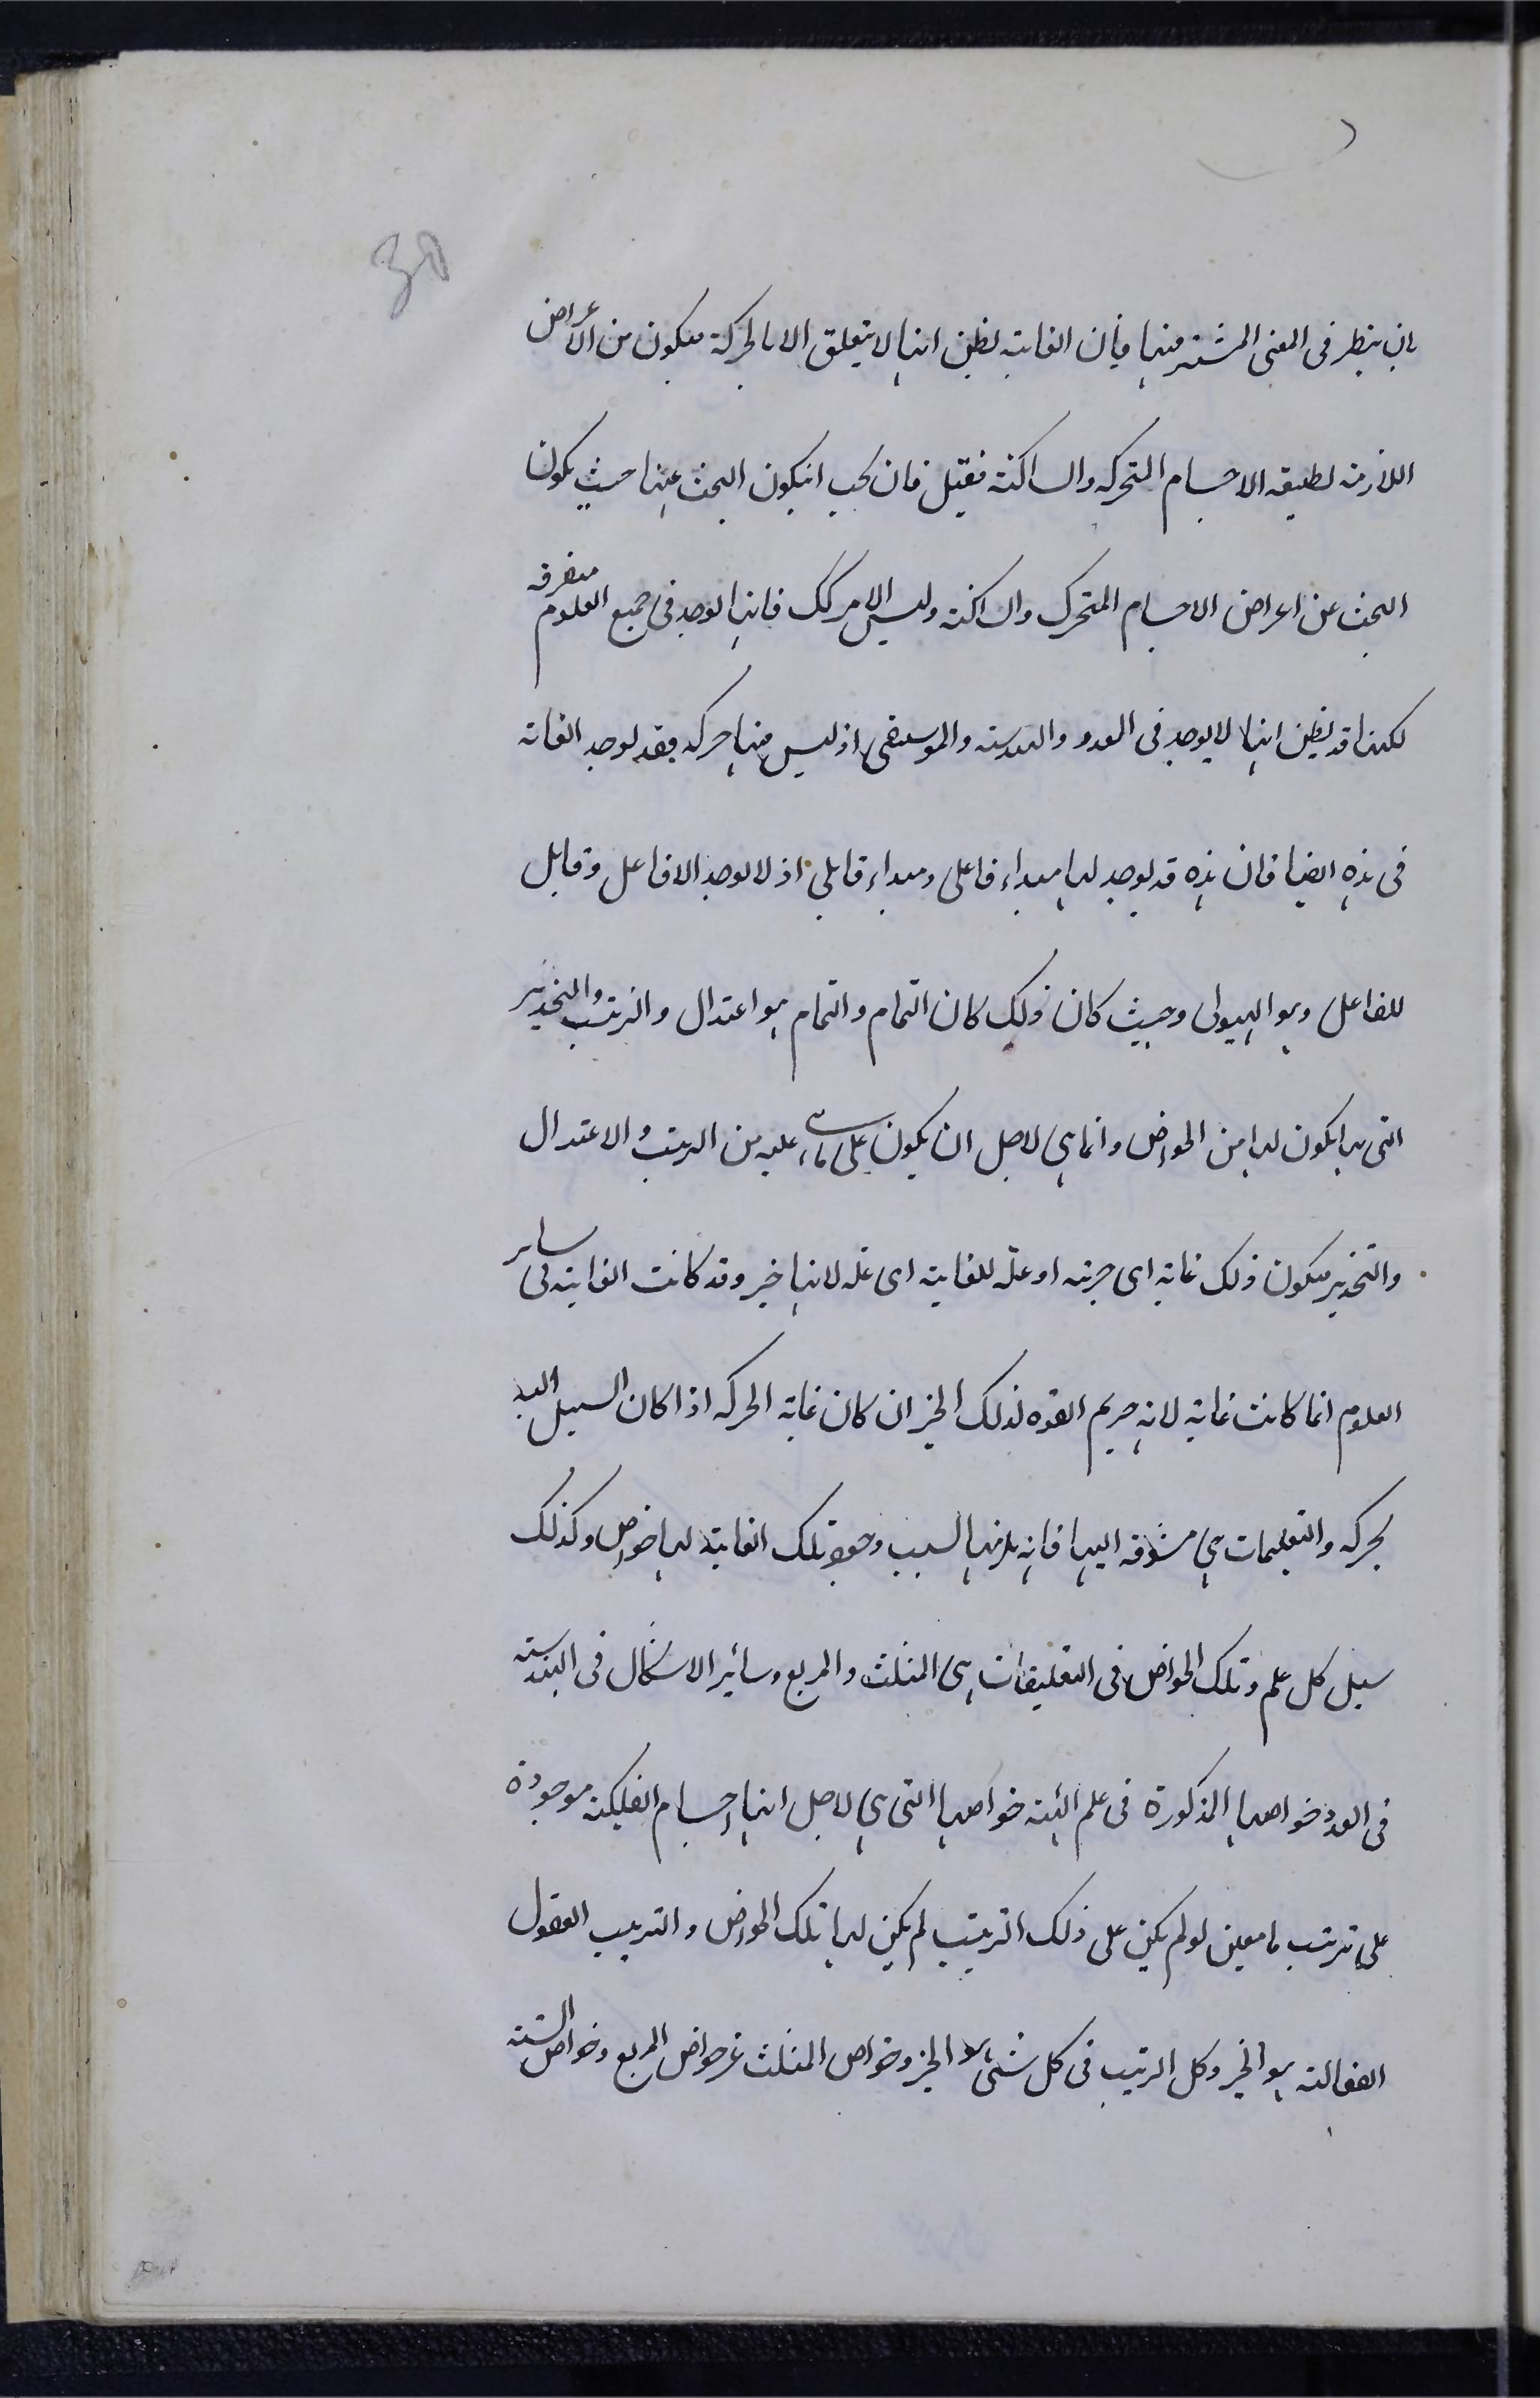 بان ينظر فى المعنى المشترك منها فان الغاية يظن انها لا يتعلق الا بالحركة فيكون من الاعراض
اللازمة لطبيعة الاجسام المتحركه والساكنة فقيل فان يجب ان يكون البحث عنها حيث يكون
البحث عن اعراض الاجسام المتحركة والساكنة وليس الامر كك فانها يوجد فى جميع العلوم متفرقه
لكنها قد يظن انها لا يوجد فى العدد والهندسه والموسيقى اذ ليس فيها حركه فقد يوجد الغاية
فى هذه ايضا فان هذه قد يوجد لها مبداء فاعلى ومبداء قابلى اذ لا يوجد الا فاعل وقابل
للفاعل وهو الهيولى وحيث كان ذلك كان التمام والتمام هو اعتدال والترتيب والتحديد
التى بها يكون لها من الخواص وانما هى لاجل ان يكون على ما هى عليه من الترتيب والاعتدال
والتحديد فيكون ذلك غاية اى خيرية او علة للغاية اى علة لانها خير وقد كانت الغاية فى ساير
العلوم انما كانت غاية لانه خير لذلك الخير ان كان غاية الحركه اذا كان السبيل اليه
بحركه والتعليمات هى مشوقه اليها فانه يلزمها لسبب تلك الغاية لها خواص وكذلك
سبيل كل علم وتلك الخواص فى التعليقات هى المثلث والمربع وسائر الاشكال فى الهندسة
فى العدد خواصها المذكورة فى علم الهيئة خواصها التى هى لاجل انها اجسام الفلكية موجودة
على ترتيب ما معين لو لم يكن على ذلك الترتيب لم يكن لها تلك الخواص والترتيب العقول
الفعالة هو الخير وكل الترتيب فى كل شئ هو الخير وخواص المثلث غير خواص المربع وخواص الستة